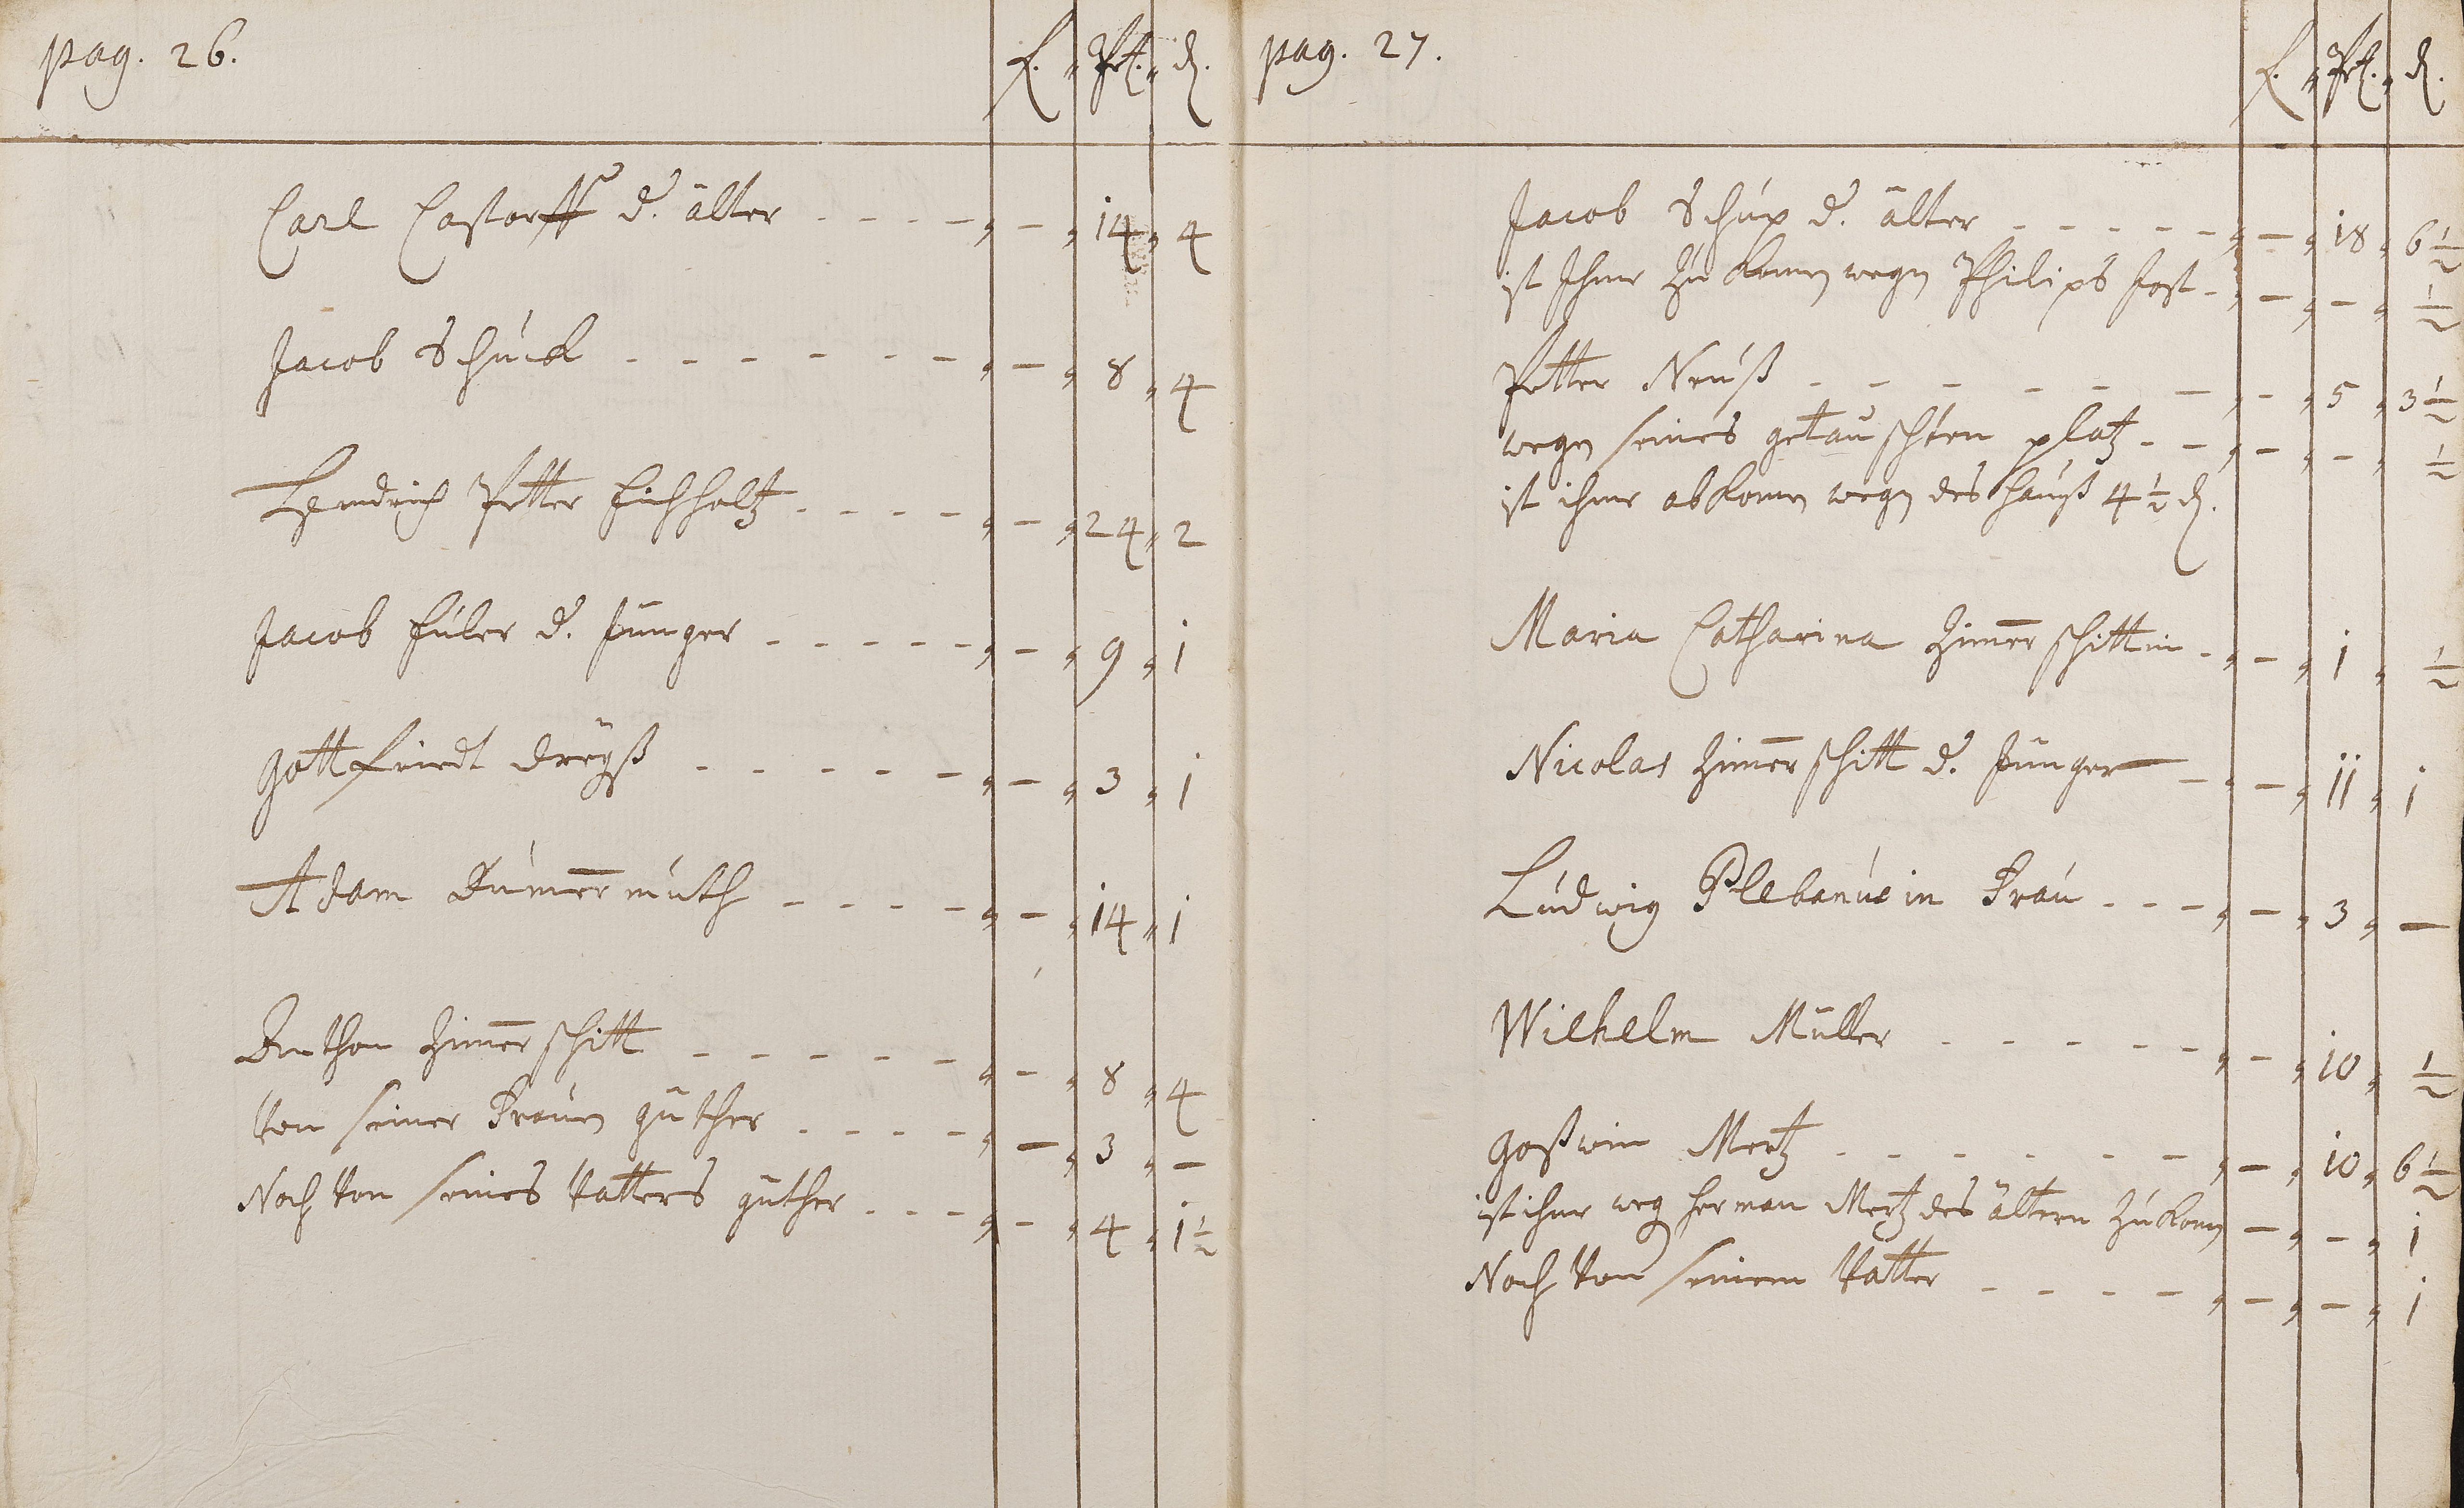 pag. 26.
f. " Pet. " d.
Carl Castorff d. älter - - - - " - " 14 " 4
Jacob Schúck - - - - - " - " 8 " 4
Hendrich Petter Eichholtz - - - - " - " 24 " 2
Jacob Eúler d. Jünger - - - - - " - " 9 " 1
Gottfriedt - - - - - " - " 3 " 1
Adam Dúmermúth - - - - " - " 14 " 1
Anthon Zimerschitt - - - - - " - " 8 " 4
Von seiner Frauen güther - - - - " - " 3 " -
Noch Von seines Vatters güther - - - " - " 4 " 1 1/2
pag. 27.
f. " Pet. " d.
Jacob Schúp d. älter - - - - - " - " 18 " 6 1/2
ist Ihme Zú komen wegen Philips Jost - " - " - " 1/2
Petter Neúß - - - - - - " - " 5 " 3 1/2
wegen seines getauschten platz - - " - " - " 1/2
ist ihme abkomen wegen des hauß 4 1/2 d.
Maria Catharina Zimerschittin - " - " 1 " 1/2
Nicolas Zimerschitt d. Jünger - " - " 11 " 1
Lúdwig Plebanús in Fraú - - - " - " 3 " -
Wilhelm Müller - - - - - " - " 10 " 1/2
Goßwin Mertz - - - - - - " - " 10 " 6 1/2
ist ihme weg Herman Mertz des ältern Zúkomen - " - " 1
Noch Von seinem Vatter - - - - " - " - " 1